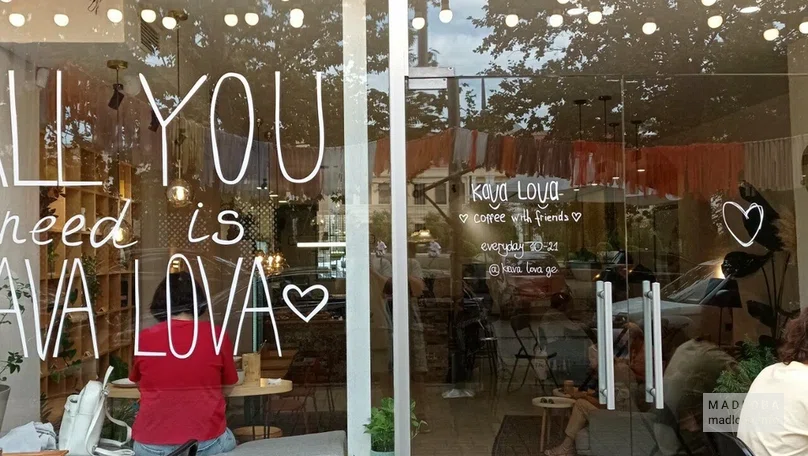 ALL YOU
need is
KAVA LOVA♡
kava Lova
♡ coffee with friends ♡
everyday 10-21
@kava lova.ge
MADLOBA